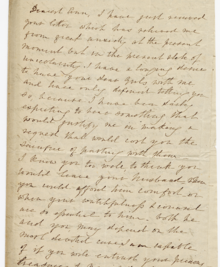 Dearest Ann, I have just received
your letter which has relieved me
from great anxiety, at the present
moment, but in the present state of
uncertainty I have a longing desire
to have your dear girls with me
and have only deferred telling you
so because I have been daily
expecting to hear something that
would justify me in making a
request that would cost you the
sacrifice of parting with them
I know you too well to think you
would leave your husband, when
you could afford him comfort or
when your watchfulness &
are so essential to him. both he
and you may depend on the
most devoted care I am capable
of if you will entrust your precious